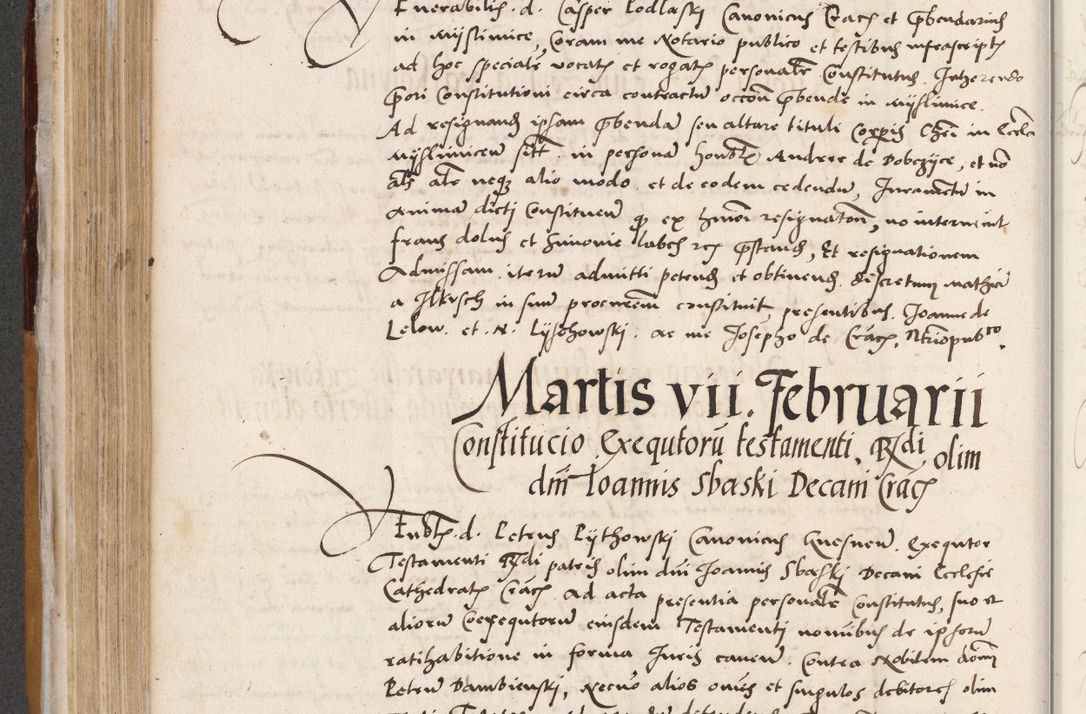 Venerabilis d. Casper Podlaski Canonicus Crac et pbendarius
in Myslimice, Coram me Notario publico et testibus infrascript
ad hoc specialr vocat et rogat personalr Constitutus, Inherendo
pori Constitutioni circa contractu pbende in Myslimice.
Ad resignand ipsam pbendã seu altare tituli Corpis in Eccle
Myslimiceñ in personã Andree de Dobczyce, et nõ
als alr neqz alio modo et de eodem cedendũ, Iurametũ in
animã dicti Constitueñ qz ex resignatoñ, nõ interueint
fraus dolus et Simonie labes pstand, Et resignationem
Admissam iterũ admitti petend et obtinend discretum Mathia
a Ilkusch in suũ procurem constituit, presentibus Ioanne de
Lelow et N. Lyschowski ac me Josepho de Crac, Notriopubco.
Martis vii. Februarii
Constitucio Exequtorũ testamenti Rdi olim
dni Ioannis Sbaski Decani Crac
d. Petrus Lythowski Canonicus Gnesneñ. Exequtor
Testamenti Rdi patris olim dni Joannis Sbaski Decani Ecclesie
Cathedral Crac Ad acta presentia personalr Constitutus, suo et
aliorũ Coexequtorũ eiusdem Testamenti nominibus de ipsorũ
ratihabitione in forma Iuris caueñ. Contra Nobilem
Petrũ Dambienski, Necnõ alios omes et singulos debitores olim